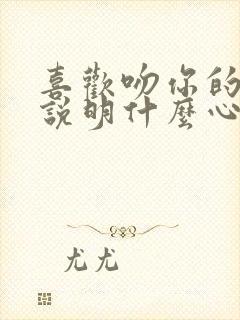 喜歡吻你的
說明什麼心
尤尤